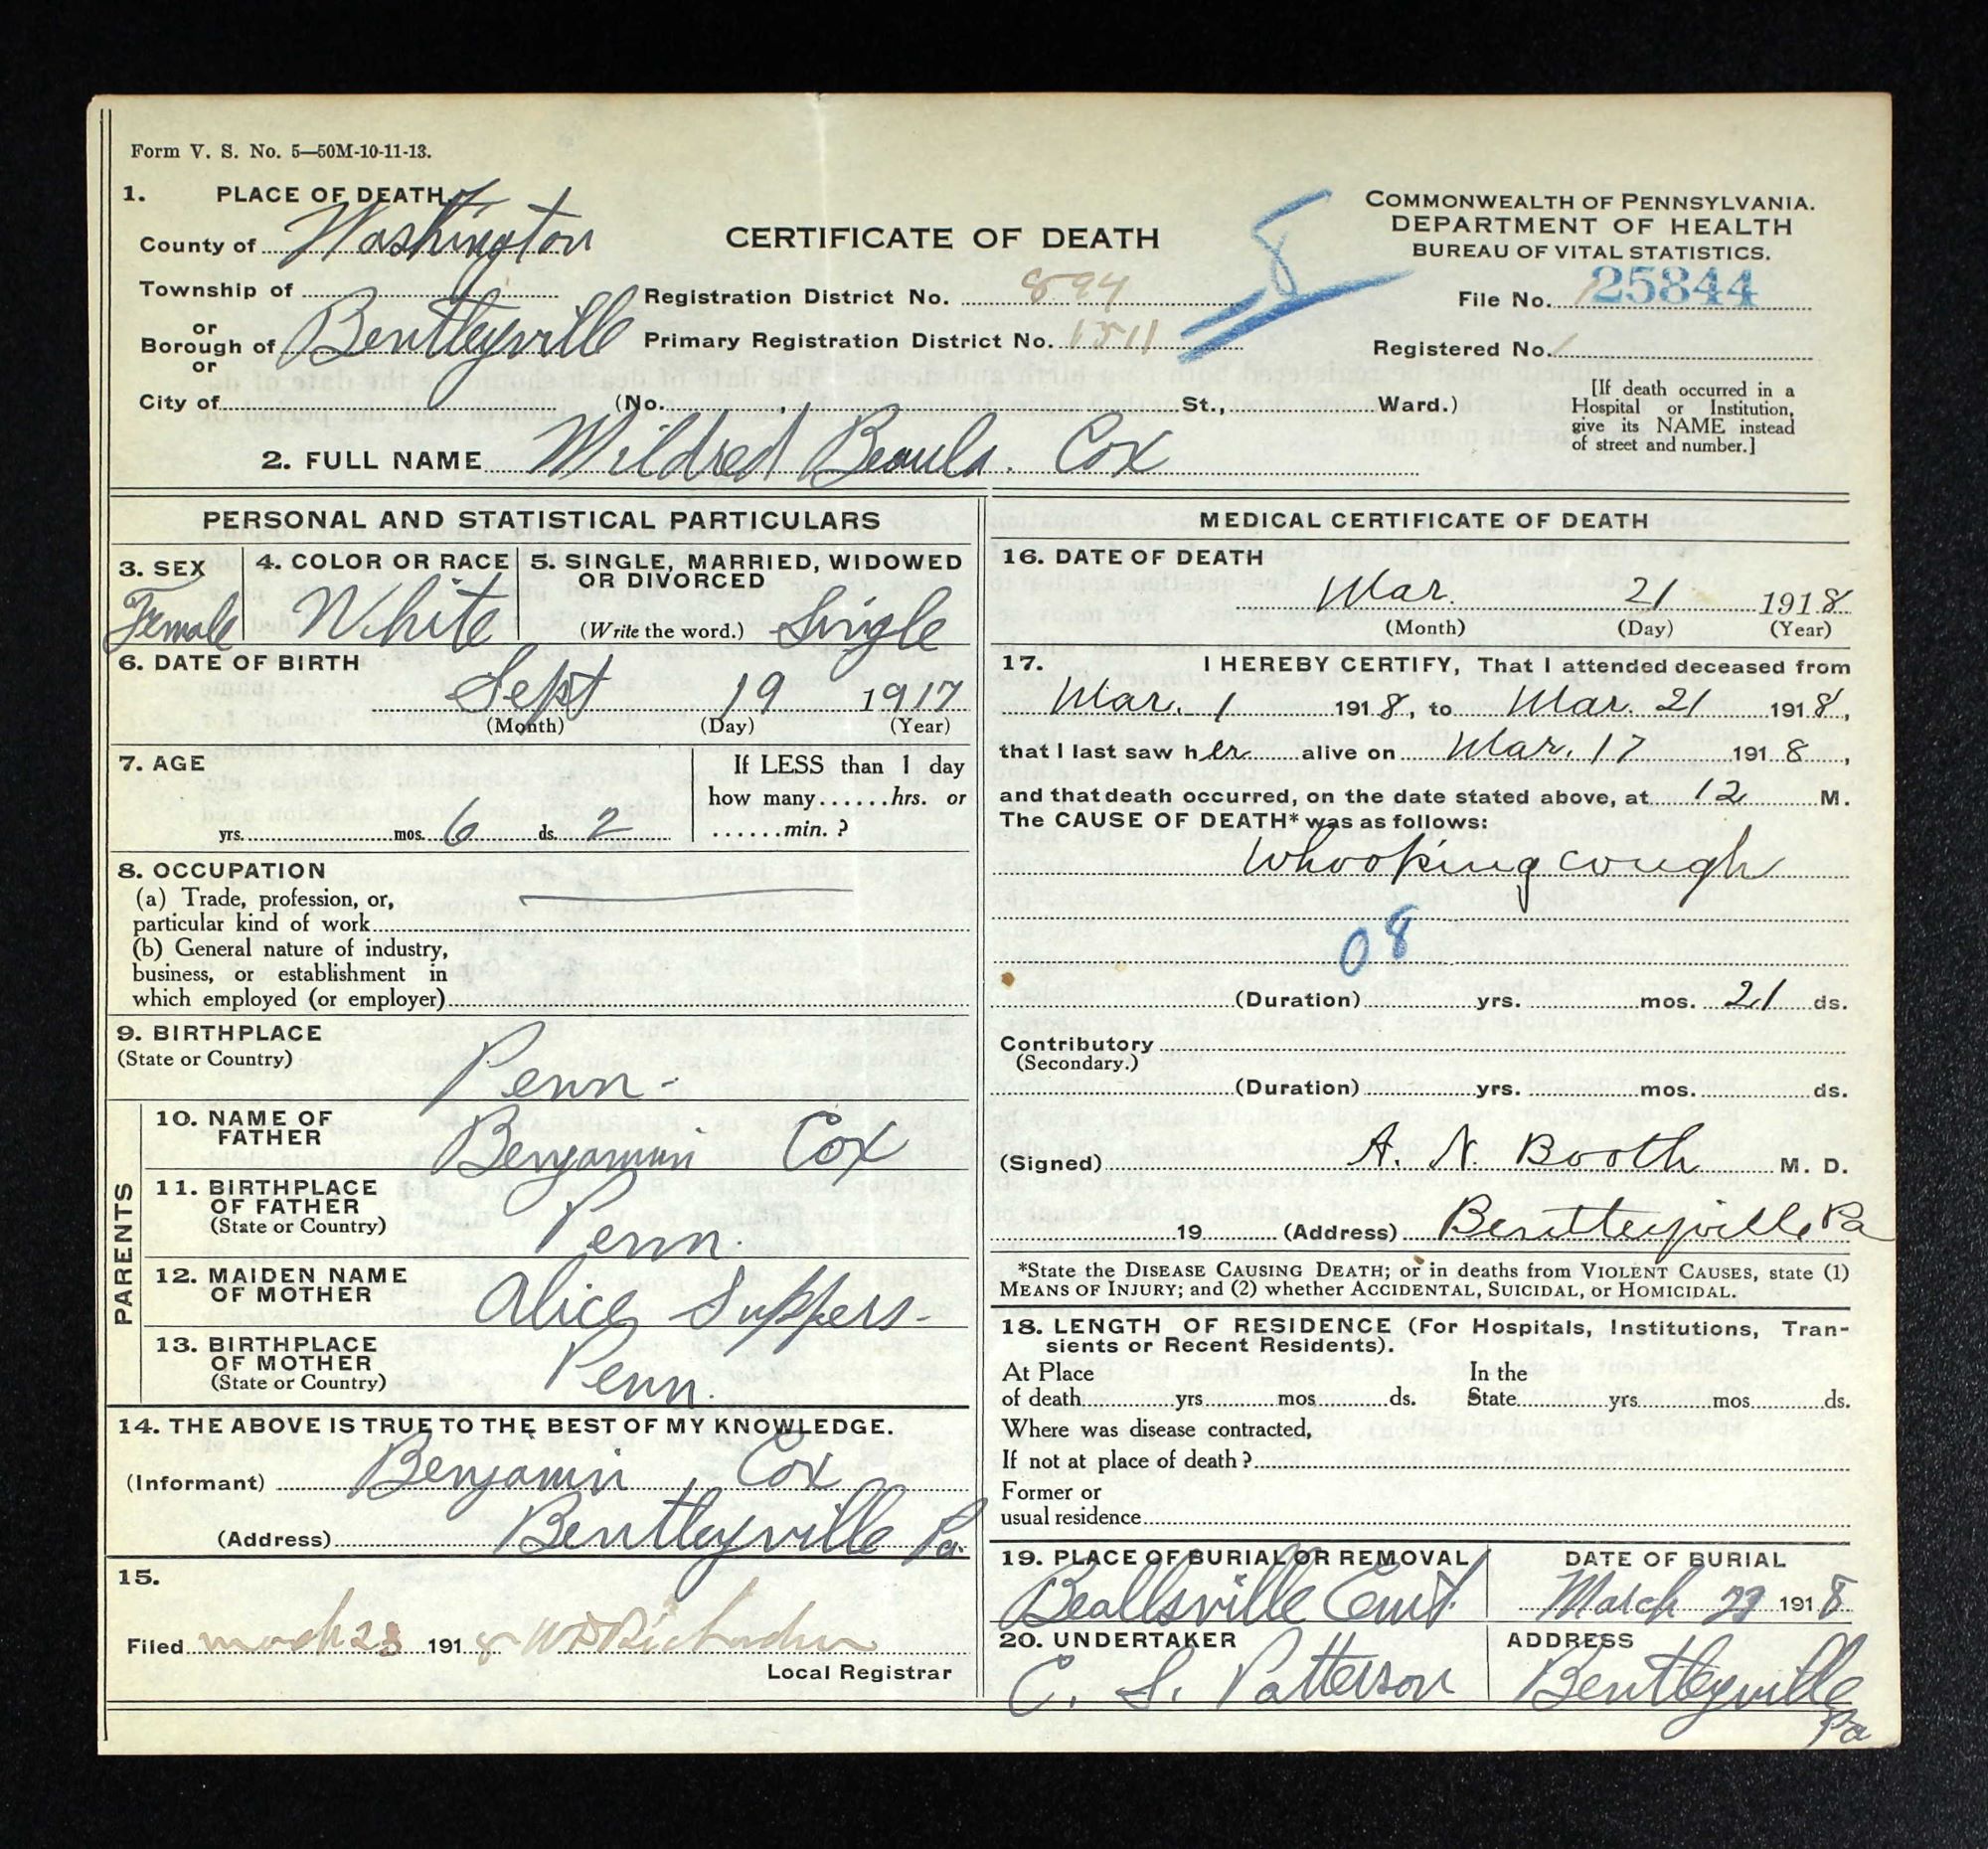 Form V. S. No. 5—50M-10-11-13.
1. PLACE OF DEATH.
County of Washington
Township of
or
Borough of Bentleyville
or
City of
CERTIFICATE OF DEATH
Registration District No. 894
Primary Registration District No. 1511
(No. , St., Ward.)
COMMONWEALTH OF PENNSYLVANIA.
DEPARTMENT OF HEALTH
BUREAU OF VITAL STATISTICS.
File No. 25844
Registered No.
[If death occurred in a
Hospital or Institution,
give its NAME instead
of street and number.]
2. FULL NAME Mildred Beaula. Cox
PERSONAL AND STATISTICAL PARTICULARS
3. SEX
Female
4. COLOR OR RACE
White
5. SINGLE, MARRIED, WIDOWED
OR DIVORCED
(Write the word.) Single
6. DATE OF BIRTH
Sept 19 1917
(Month) (Day) (Year)
7. AGE
yrs. mos. 6 ds. 2
If LESS than 1 day
how many......hrs. or
......min. ?
8. OCCUPATION
(a) Trade, profession, or,
particular kind of work
(b) General nature of industry,
business, or establishment in
which employed (or employer)
9. BIRTHPLACE
(State or Country)
Penn-
PARENTS
10. NAME OF
FATHER
Benjamin Cox
11. BIRTHPLACE
OF FATHER
(State or Country)
Penn.
12. MAIDEN NAME
OF MOTHER
Alice Suppers-
13. BIRTHPLACE
OF MOTHER
(State or Country)
Penn.
14. THE ABOVE IS TRUE TO THE BEST OF MY KNOWLEDGE.
(Informant) Benjamin Cox
(Address) Bentleyville Pa.
15.
Filed March 23 1918 W D Richardson
Local Registrar
MEDICAL CERTIFICATE OF DEATH
16. DATE OF DEATH
Mar. 21 1918
(Month) (Day) (Year)
17. I HEREBY CERTIFY, That I attended deceased from
Mar. 1 1918, to Mar. 21 1918,
that I last saw her alive on Mar. 17 1918,
and that death occurred, on the date stated above, at 12 M.
The CAUSE OF DEATH* was as follows:
Whooping cough
08
(Duration) yrs. mos. 21 ds.
Contributory
(Secondary.)
(Duration) yrs. mos. ds.
(Signed) A. N. Booth M. D.
19 (Address) Bentleyville Pa
*State the DISEASE CAUSING DEATH; or in deaths from VIOLENT CAUSES, state (1)
MEANS OF INJURY; and (2) whether ACCIDENTAL, SUICIDAL, or HOMICIDAL.
18. LENGTH OF RESIDENCE (For Hospitals, Institutions, Tran-
sients or Recent Residents).
At Place In the
of death yrs mos ds. State yrs mos ds.
Where was disease contracted,
If not at place of death ?
Former or
usual residence
19. PLACE OF BURIAL OR REMOVAL
Beallsville Cemt.
DATE OF BURIAL
March 23 1918
20. UNDERTAKER
C. S. Patterson
ADDRESS
Bentleyville
Pa